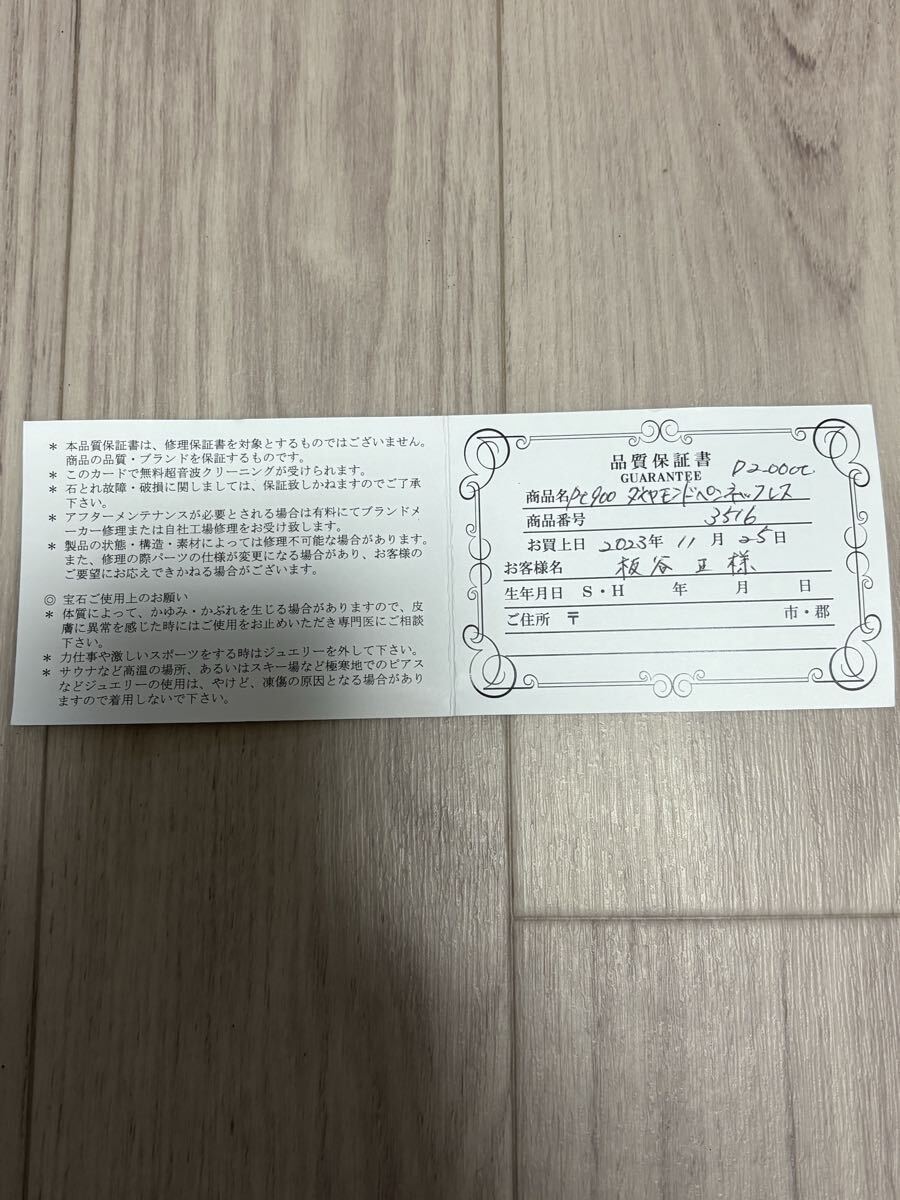 ＊ 本品質保証書は、修理保証書を対象とするものではございません。
商品の品質・ブランドを保証するものです。
＊ このカードで無料超音波クリーニングが受けられます。
＊ 石とれ故障・破損に関しましては、保証致しかねますのでご了承
下さい。
＊ アフターメンテナンスが必要とされる場合は有料にてブランドメ
ーカー修理または自社工場修理をお受け致します。
＊ 製品の状態・構造・素材によっては修理不可能な場合があります。
また、修理の際パーツの仕様が変更になる場合があり、お客様の
ご要望にお応えできかねる場合がございます。
◎ 宝石ご使用上のお願い
＊ 体質によって、かゆみ・かぶれを生じる場合がありますので、皮
膚に異常を感じた時にはご使用をお止めいただき専門医にご相談
下さい。
＊ 力仕事や激しいスポーツをする時はジュエリーを外して下さい。
＊ サウナなど高温の場所、あるいはスキー場など極寒地でのピアス
などジュエリーの使用は、やけど、凍傷の原因となる場合があり
ますので着用しないで下さい。
品質保証書
GUARANTEE
D2.00ct
商品名 Pt900 ダイヤモンドペンネックレス
商品番号 3516
お買上日 2023年 11月 25日
お客様名 板谷 正 様
生年月日 S・H 年 月 日
ご住所 〒 市・郡